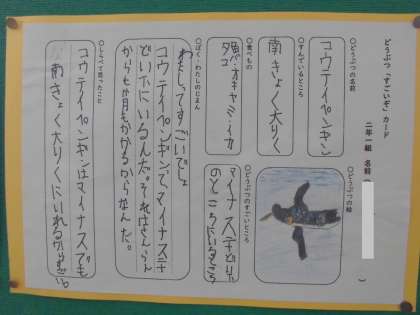 どうぶつ「すごいぞ」カード
二年一組 名前(
)
○どうぶつの名前
コウテイペンギン
○すんでいるところ
南きょく大りく
○食べもの
オキアミ・イカ
タコ
○どうぶつの絵
○どうぶつのすごいところ
マイナス
のところにいるところ
○ぼく・わたしのじまん
わたしってすごいでしょ
コウテイペンギンって、マイナス
にいるんだ。それはさんらん
から七か月もかかるからなんだ。
○しらべて思ったこと
コウテイペンギンはマイナスでも
南きょく大りくにいれるからすごい。